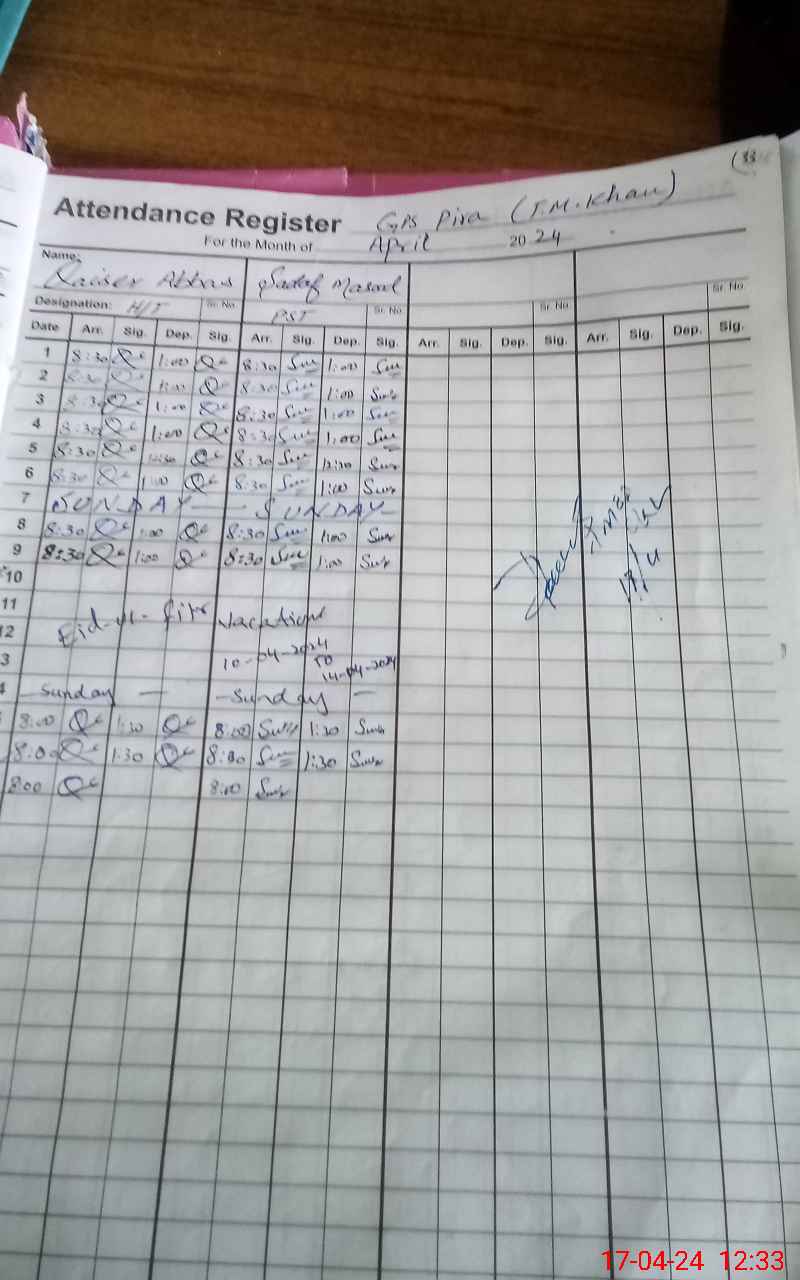 (33
Attendance Register GPS Pira (T.M.Khan)
For the Month of April 2024
Name: Qaiser Abbas Sadaf Masood
Designation: H/T Sr. No. PST Sr. No. Sr. No. Sr. No.
Date Arr. Sig. Dep. Sig. Arr. Sig. Dep. Sig. Arr. Sig. Dep. Sig. Arr. Sig. Dep. Sig.
1 8:30 1:00 8:30 1:00
2 8:30 1:00 8:30 1:00
3 8:30 1:00 8:30 1:00
4 8:30 1:00 8:30 1:00
5 8:30 12:30 8:30 12:30
6 8:30 1:00 8:30 1:00
7 SUNDAY — SUNDAY
8 8:30 1:00 8:30 1:00
9 8:30 1:00 8:30 1:00
10
11
12 Eid-ul-fitr Vacations
3 10-04-2024 to 14-04-2024
4 — Sunday — — Sunday —
8:00 1:30 8:00 1:30
8:00 1:30 8:00 1:30
8:00 8:00
17/4
17-04-24 12:33